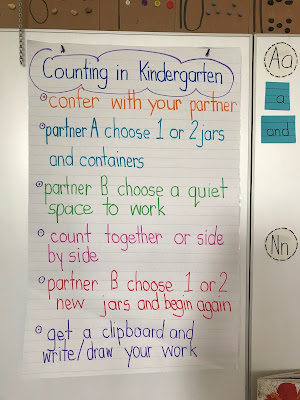 Counting in Kindergarten
confer with your partner
partner A choose 1 or 2 jars
and containers
partner B choose a quiet
space to work
count together or side
by side
partner B choose 1 or 2
new jars and begin again
get a clipboard and
write/draw your work
Aa
a
and
Nn